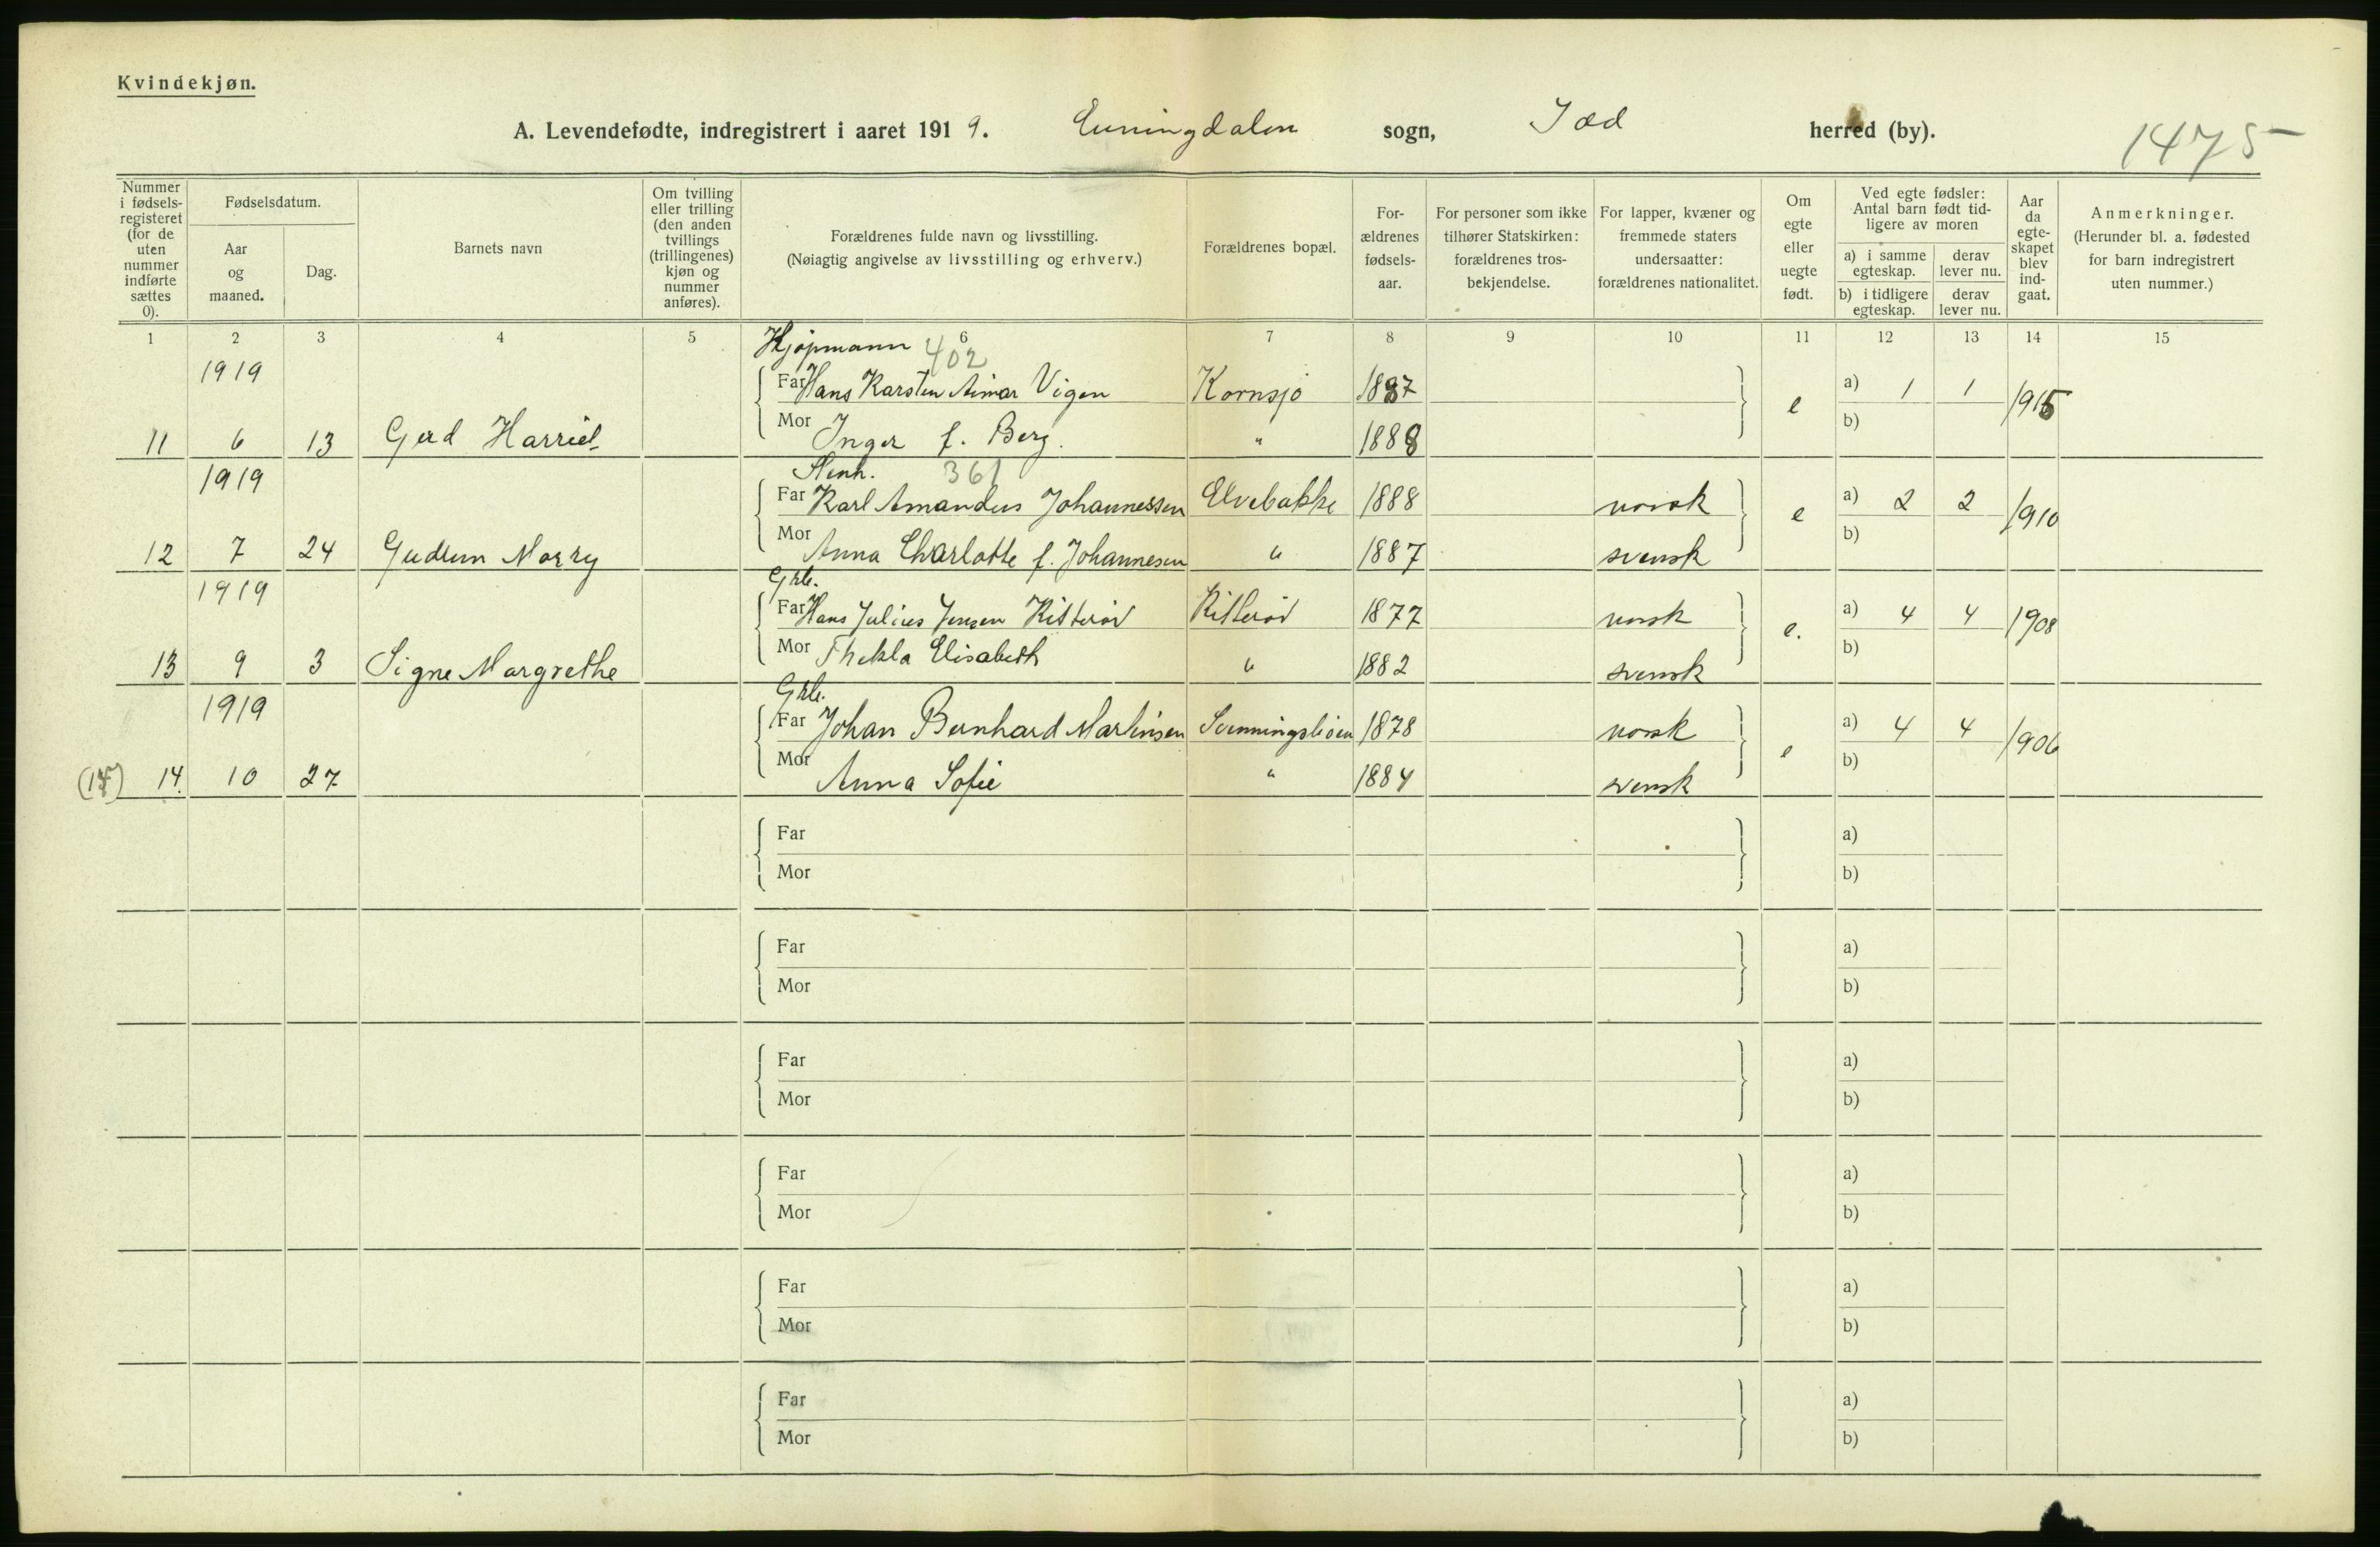 Kvindekjøn.
A. Levendefødte, indregistrert i aaret 1919. Enningdalen sogn, Idd herred (by).
1475
Nummer i fødsels-registeret (for de uten nummer indførte sættes 0).
Fødselsdatum.
Aar og maaned.
Dag.
Barnets navn
Om tvilling eller trilling (den anden tvillings (trillingenes) kjøn og nummer anføres).
Forældrenes fulde navn og livsstilling.
(Nøiagtig angivelse av livsstilling og erhverv.)
Forældrenes bopæl.
For-ældrenes fødsels-aar.
For personer som ikke tilhører Statskirken: forældrenes tros-bekjendelse.
For lapper, kvæner og fremmede staters undersaatter: forældrenes nationalitet.
Om egte eller uegte født.
Ved egte fødsler: Antal barn født tid-ligere av moren
a) i samme egteskap.
derav lever nu.
b) i tidligere egteskap.
derav lever nu.
Aar da egte-skapet blev ind-gaat.
Anmerkninger.
(Herunder bl. a. fødested for barn indregistrert uten nummer.)
1 2 3 4 5 6 7 8 9 10 11 12 13 14 15
Kjøpmann 402
1919 Far Hans Karsten Aimar Vigen Kornsjø 1887 e a) 1 1 1915
11 6 13 Gerd Harriet Mor Inger f. Berg. " 1888 b)
Stenh. 361
1919 Far Karl Amandus Johannessen Elvebakke 1888 norsk e a) 2 2 1910
12 7 24 Gudrun Marry Mor Anna Charlotte f. Johannesen " 1887 svensk b)
Grbr.
1919 Far Hans Julius Jensen Kitterød Kitterød 1877 norsk e. a) 4 4 1908
13 9 3 Signe Margrethe Mor Thekla Elisabeth " 1882 svensk b)
Grbr.
1919 Far Johan Bernhard Martinsen 1878 norsk e a) 4 4 1906
14. 10 27 Mor Anna Sofie " 1884 svensk b)
Far a)
Mor b)
Far a)
Mor b)
Far a)
Mor b)
Far a)
Mor b)
Far a)
Mor b)
Far a)
Mor b)